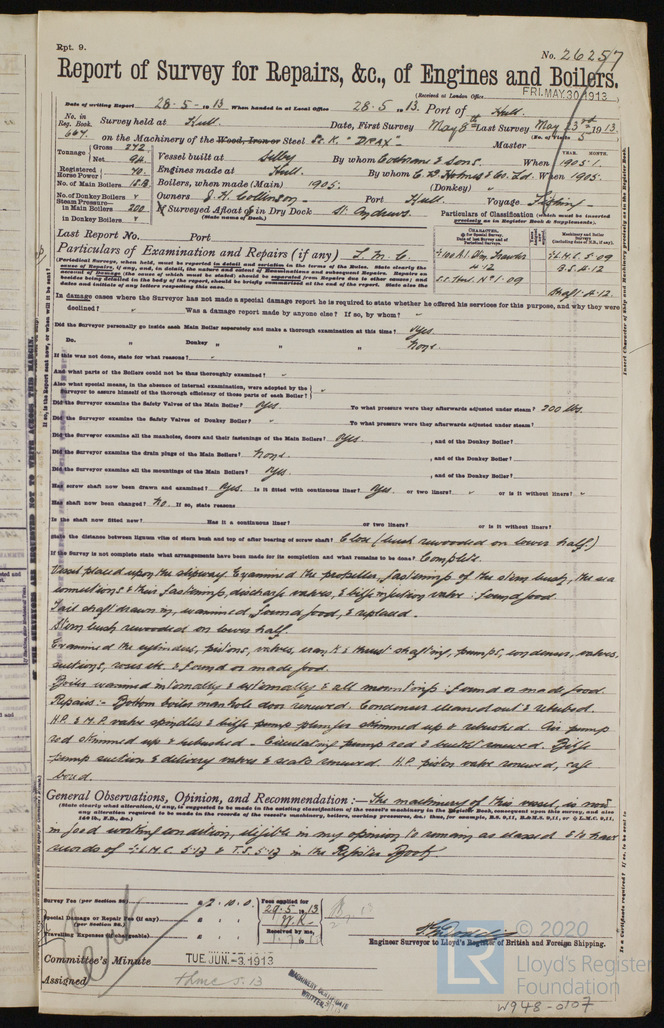 Rpt. 9.
No. 26257
Report of Survey for Repairs, &c., of Engines and Boilers.
(Received at London Office FRI. MAY. 30 1913
Date of writing Report 28-5-1913 When handed in at Local Office 28.5.1913. Port of Hull.
No. in Reg. Book. 667. Survey held at Hull. Date, First Survey May 8th Last Survey May 23rd 1913.
(No. of Visits 5
on the Machinery of the Wood, Iron or Steel Sc. K. "DRAX" Master
Tonnage Gross 272 Net 94 Vessel built at Selby By whom Cochrane & Sons. When 1905.1.
YEAR. MONTH.
Registered Horse Power 70. Engines made at Hull. By whom C. D. Holmes & Co. Ld. When 1905.
No. of Main Boilers Boilers, when made (Main) 1905. (Donkey)
No. of Donkey Boilers Owners J. H. Collinson Port Hull. Voyage Fishing
Steam Pressure in Main Boilers 200 If Surveyed Afloat or in Dry Dock St. Andrews.
(State name of Dock.)
in Donkey Boilers
Particulars of Classification (which must be inserted precisely as in Register Book & Supplements).
Last Report No. Port
Particulars of Examination and Repairs (if any) L.M.C.
(Periodical Surveys, when held, must be reported in detail and seriatim in the terms of the Rules. State clearly the cause of Repairs, if any, and, in detail, the nature and extent of Examinations and subsequent Repairs. Repairs on account of Damage (the cause of which must be stated) should be separated from Repairs due to other causes; and besides being detailed in the body of the report, should be briefly summarized at the end of the report. State also the dates and initials of any letters respecting this case.
CHARACTER.
+100 A1 Stm Trawler
4.12
S.S. Hull. No 1-09
Machinery and Boiler Surveys (including date of N.B., if any).
+L.M.C. 5.09
B.S. 4.12
Shaft 4.12.
In damage cases where the Surveyor has not made a special damage report he is required to state whether he offered his services for this purpose, and why they were
declined? " Was a damage report made by anyone else? If so, by whom? "
Did the Surveyor personally go inside each Main Boiler separately and make a thorough examination at this time? Yes.
Do. " Donkey " " " None
If this was not done, state for what reasons? "
And what parts of the Boilers could not be thus thoroughly examined? "
Also what special means, in the absence of internal examination, were adopted by the
Surveyor to assure himself of the thorough efficiency of those parts of each Boiler? "
Did the Surveyor examine the Safety Valves of the Main Boiler? Yes. To what pressure were they afterwards adjusted under steam? 200 lbs.
Did the Surveyor examine the Safety Valves of Donkey Boiler? " To what pressure were they afterwards adjusted under steam?
Did the Surveyor examine all the manholes, doors and their fastenings of the Main Boilers? Yes. , and of the Donkey Boiler?
Did the Surveyor examine the drain plugs of the Main Boilers? None. , and of the Donkey Boiler?
Did the Surveyor examine all the mountings of the Main Boilers? Yes. , and of the Donkey Boiler?
Has screw shaft now been drawn and examined? Yes. Is it fitted with continuous liner? Yes. or two liners? " or is it without liners? "
Has shaft now been changed? No. If so, state reasons
Is the shaft now fitted new? Has it a continuous liner? or two liners? or is it without liners?
State the distance between lignum vitæ of stern bush and top of after bearing of screw shaft? Close (bush rewooded on lower half.)
If the Survey is not complete state what arrangements have been made for its completion and what remains to be done? Complete.
Vessel placed upon the slipway. Examined the propeller, fastenings of the stern bush, the sea
connections & their fastenings, discharge valves, & bilge injection valve: found good.
Tail shaft drawn in, examined, found good, & replaced.
Stern bush rewooded on lower half.
Examined the cylinders, pistons, valves, crank & thrust shafting, pumps, condenser, valves,
suctions, roses etc. & found or made good.
Boiler examined internally & externally & all mountings: found or made good.
Repairs:- Bottom boiler manhole door renewed. Condenser cleaned out & retubed.
H.P. & M.P. valve spindles & bilge pump plunger skimmed up & rebushed. Air pump
rod skimmed up & rebushed. Circulating pump rod & bucket renewed. Bilge
pump suction & delivery valves & seats renewed. H.P. piston valve renewed,
bored.
General Observations, Opinion, and Recommendation:—The machinery of this vessel is now
(State clearly what alteration, if any, is suggested to be made in the existing classification of the vessel's machinery in the Register Book, consequent upon this survey, and also any alteration required to be made in the records of the vessel's machinery, boilers, working pressures, &c.: thus, for example, B.S. 9,11, B.&M.S. 9,11, or + L.M.C. 9,11, 140 lb., F.D., &c.)
in good working condition, eligible in my opinion to remain as classed & to have
records of +L.M.C. 5.13 & T.S. 5.13 in the Register Book.
Survey Fee (per Section 28) £ 2.10.0 Fees applied for 29.5.1913
Special Damage or Repair Fee (if any) (per Section 28.) £
Travelling Expenses (if chargeable) £ Received by me,
Engineer Surveyor to Lloyd's Register of British and Foreign Shipping.
Committee's Minute TUE. JUN. -3. 1913
Assigned + LMC 5.13
MACHINERY CERTIFICATE WRITTEN
© 2020
LR
Lloyd's Register
Foundation
W948-0107